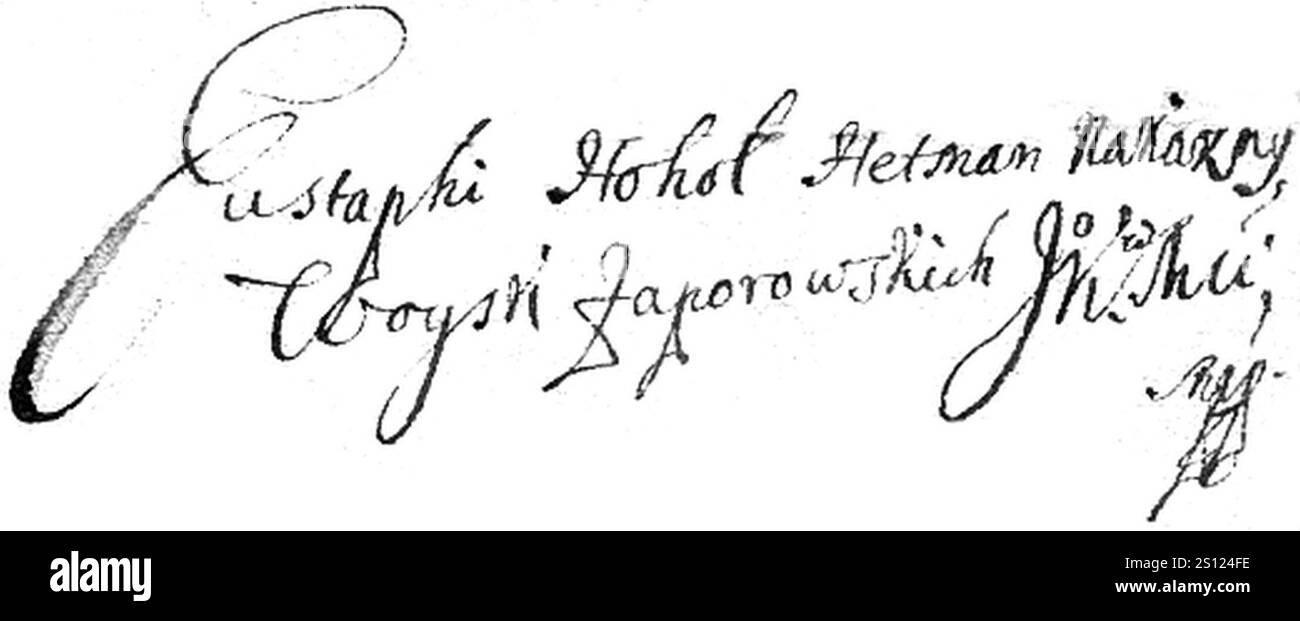 Eustaphi Hohoł Hetman Nakazny,
Woysk Zaporowskich
alamy
Image ID: 2S124FE
www.alamy.com